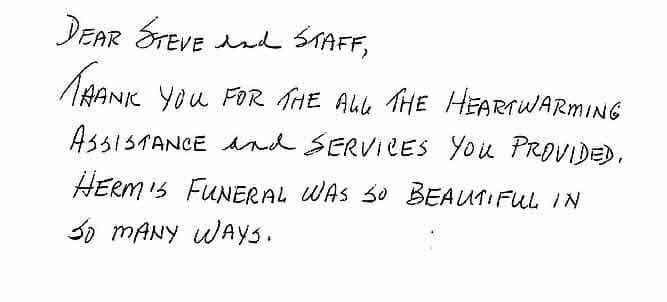 DEAR STEVE and STAFF,
THANK YOU FOR THE ALL THE HEARTWARMING
ASSISTANCE and SERVICES YOU PROVIDED.
HERM'S FUNERAL WAS SO BEAUTIFUL IN
SO MANY WAYS.